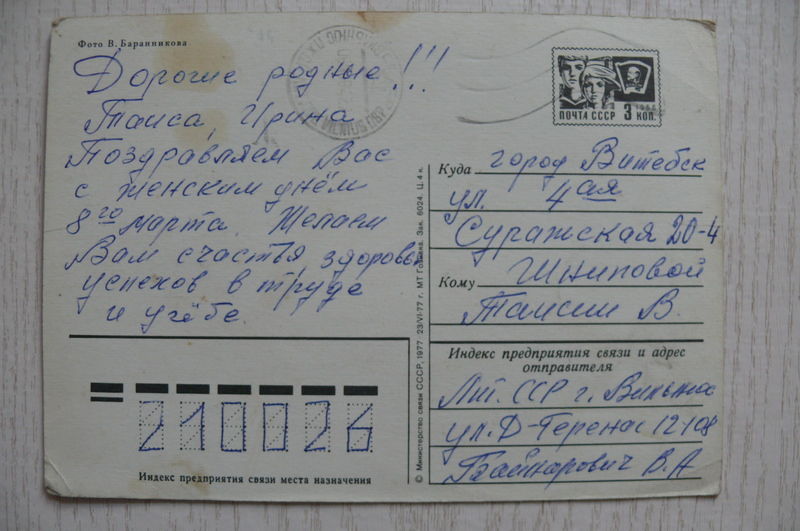 Фото В. Баранникова
Дорогие родные!!!
Таиса, Ирина
Поздравляем Вас
с женским днём
8го марта. Желаем
Вам счастья здоровья
успехов в труде
и учёбе.
VILNIUS
1966
ПОЧТА СССР 3 КОП.
Куда город Витебск
ул. 4ая
Суражская 20-4
Кому Шниповой
Таисии В.
Индекс предприятия связи и адрес
отправителя
Лит. ССР г. Вильнюс
ул. Д-Герено 12-108
В. А
210026
Индекс предприятия связи места назначения
© Министерство связи СССР, 1977 23/VI-77 г. МТ Гознака. Зак. 6024. Ц. 4 к.